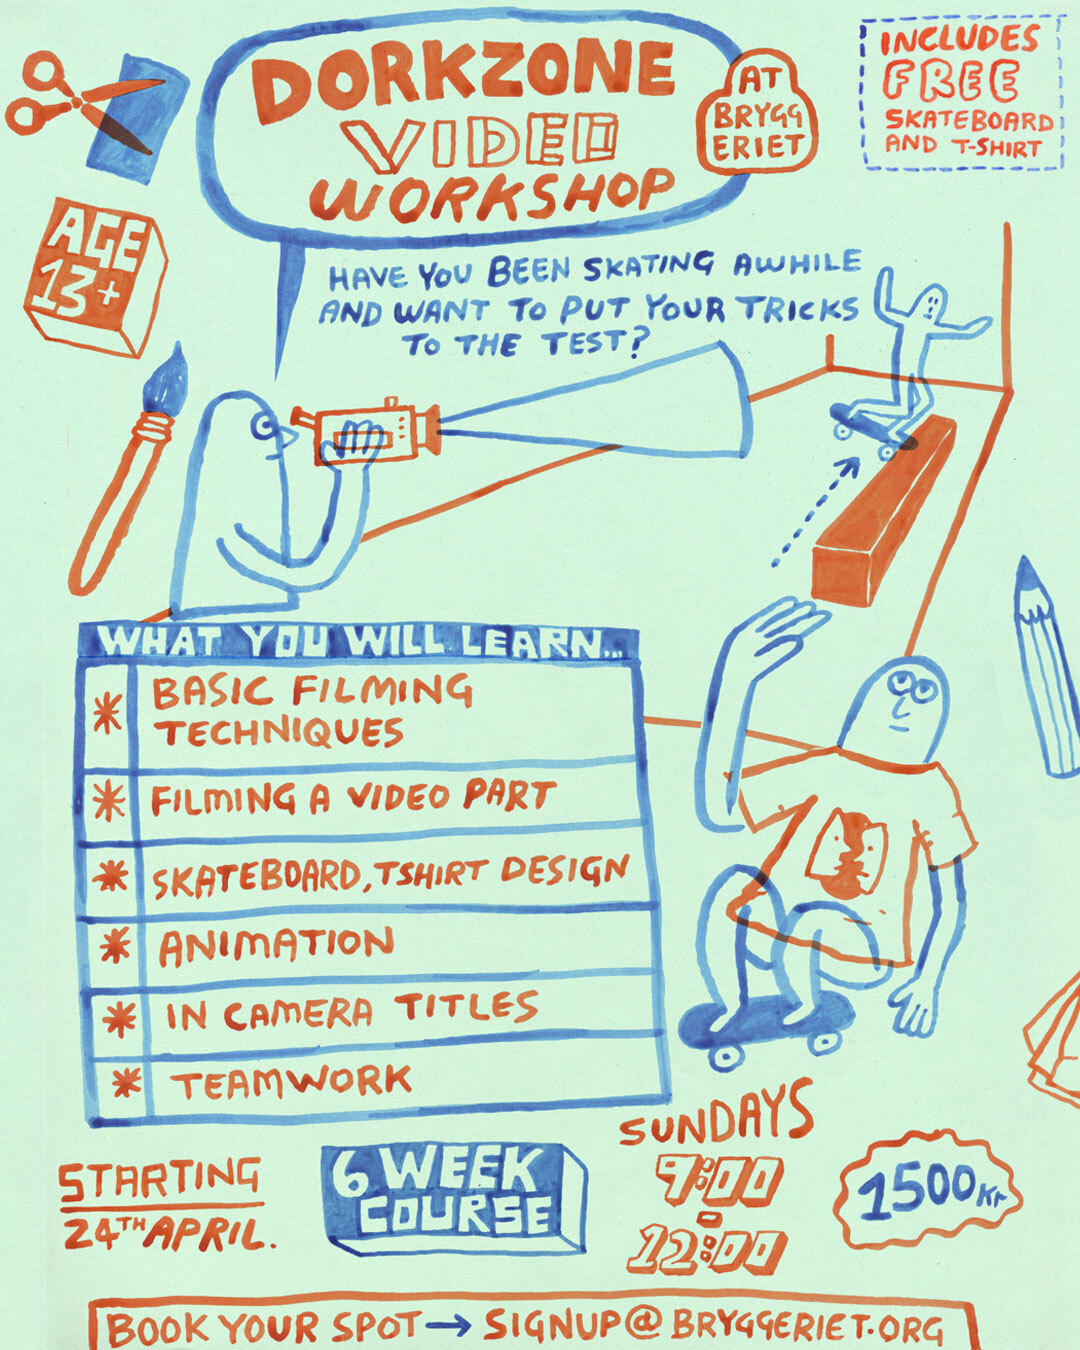 DORKZONE
VIDEO
WORKSHOP
AT
BRYGG
ERIET
INCLUDES
FREE
SKATEBOARD
AND T-SHIRT
AGE
13+
HAVE YOU BEEN SKATING AWHILE
AND WANT TO PUT YOUR TRICKS
TO THE TEST?
WHAT YOU WILL LEARN...
* BASIC FILMING
TECHNIQUES
* FILMING A VIDEO PART
* SKATEBOARD, TSHIRT DESIGN
* ANIMATION
* IN CAMERA TITLES
* TEAMWORK
STARTING
24TH APRIL.
6 WEEK
COURSE
SUNDAYS
9:00
-
12:00
1500Kr
BOOK YOUR SPOT → SIGNUP@BRYGGERIET.ORG